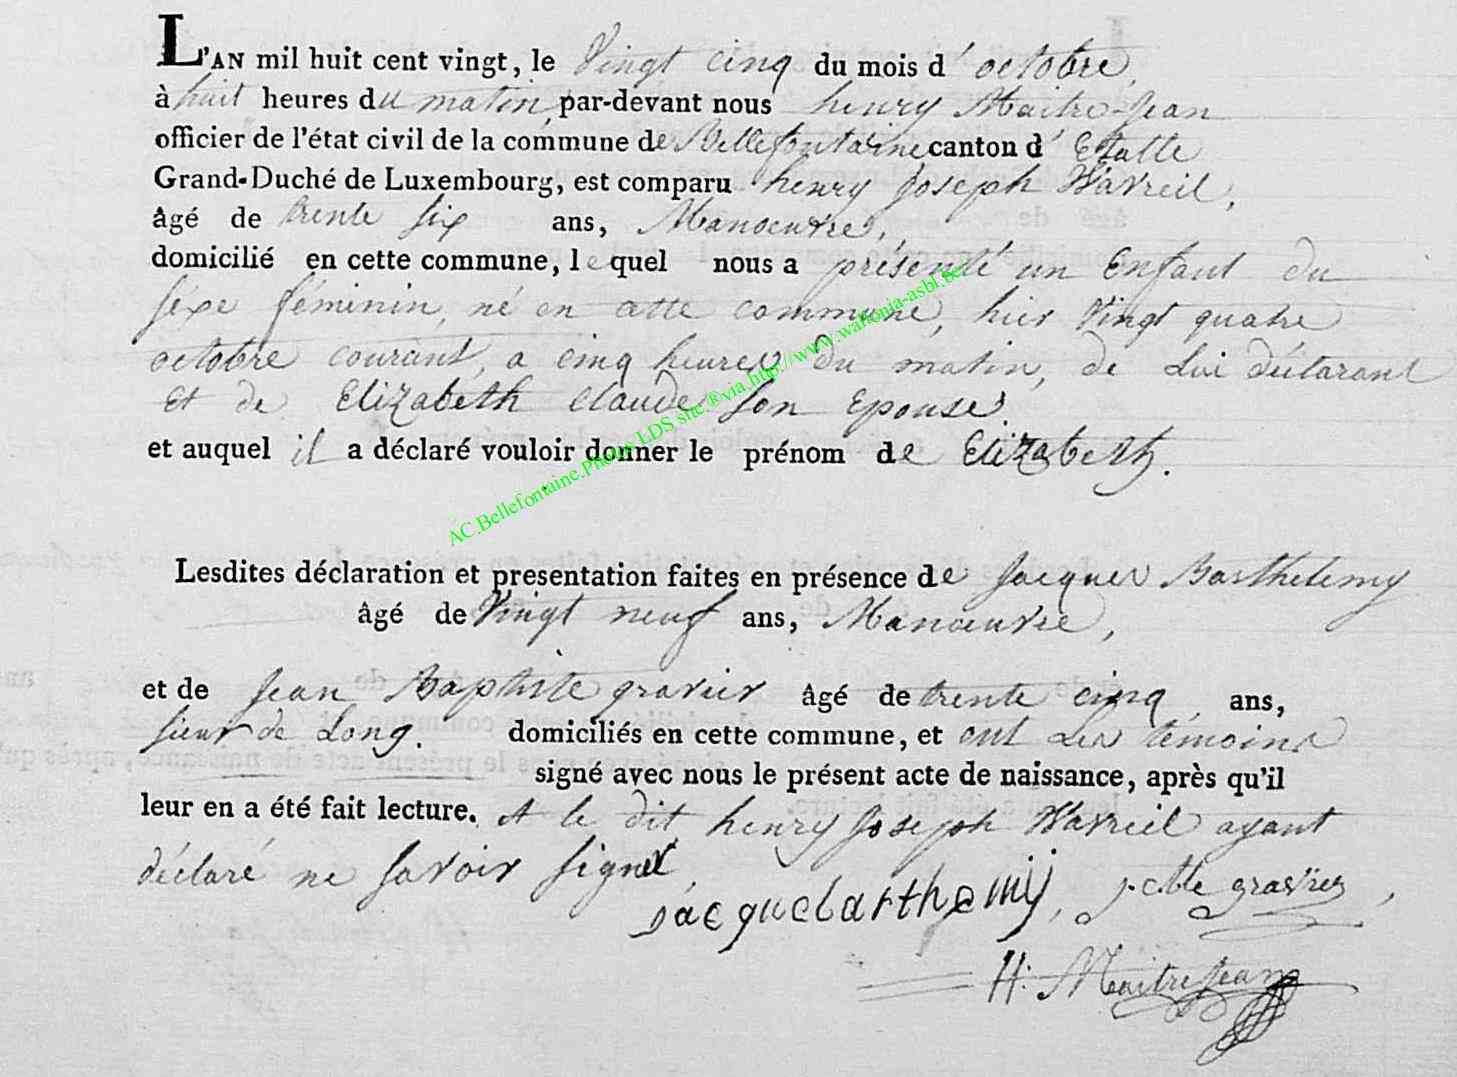 L'AN mil huit cent vingt, le Vingt cinq du mois d'octobre,
à huit heures du matin, par-devant nous henry Maitre-Jean
officier de l'état civil de la commune de Bellefontaine canton d'Etalle
Grand-Duché de Luxembourg, est comparu henry Joseph Wavreil,
âgé de trente six ans, Manoeuvre,
domicilié en cette commune, lequel nous a présenté un Enfant du
séxe féminin, né en cette commune, hier Vingt quatre
octobre courant, a cinq heures du matin, de Lui déclarant
Et de Elizabeth Claude son Epouse,
et auquel il a déclaré vouloir donner le prénom de Elizabeth.
AC.Bellefontaine.Photos LDS site.®via.http://www.wallonia-asbl.be/
Lesdites déclaration et presentation faites en présence de Jacques Barthelemy
âgé de Vingt neuf ans, Manoeuvre,
et de Jean Baptiste gravier âgé de trente cinq ans,
sieur de Long. domiciliés en cette commune, et ont Les témoins
signé avec nous le présent acte de naissance, après qu'il
leur en a été fait lecture. A le dit henry Joseph Wavreil ayant
déclaré ne savoir signer,
H. MaitreJean